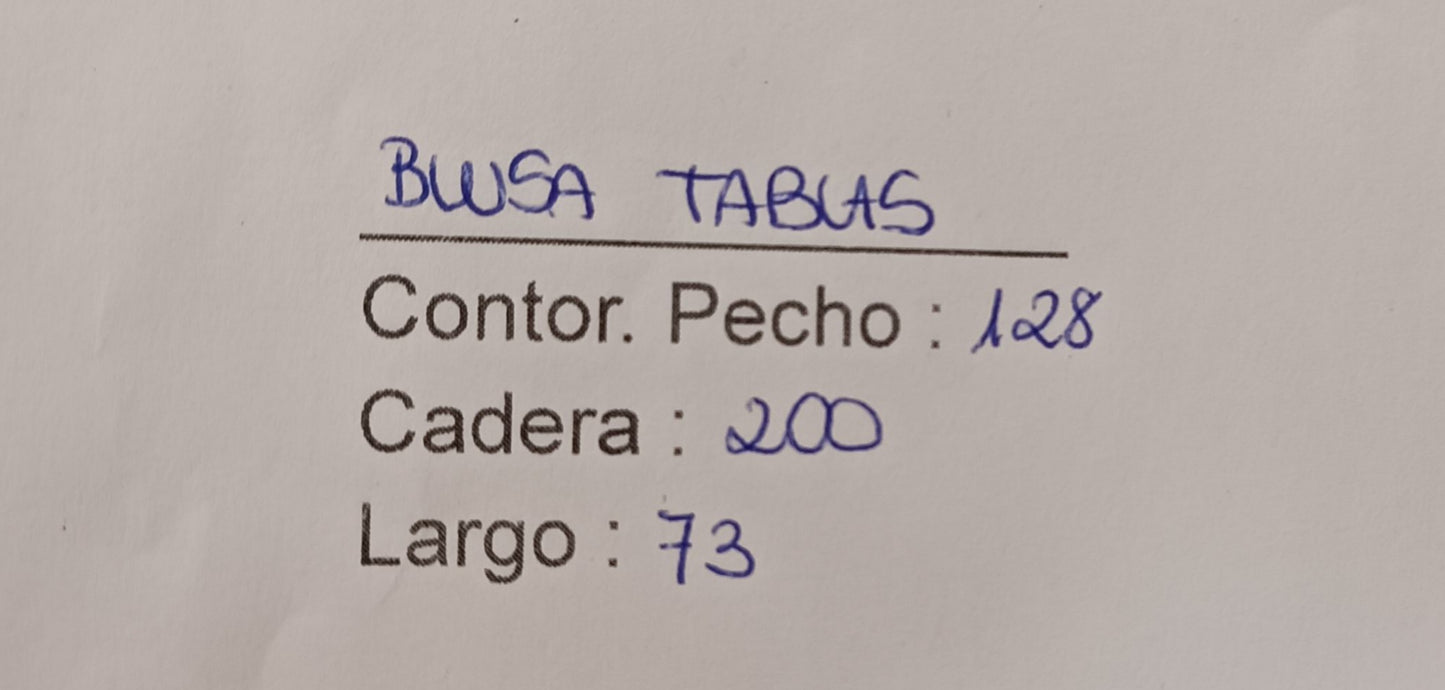 BLUSA TABLAS
Contor. Pecho : 128
Cadera : 200
Largo : 73